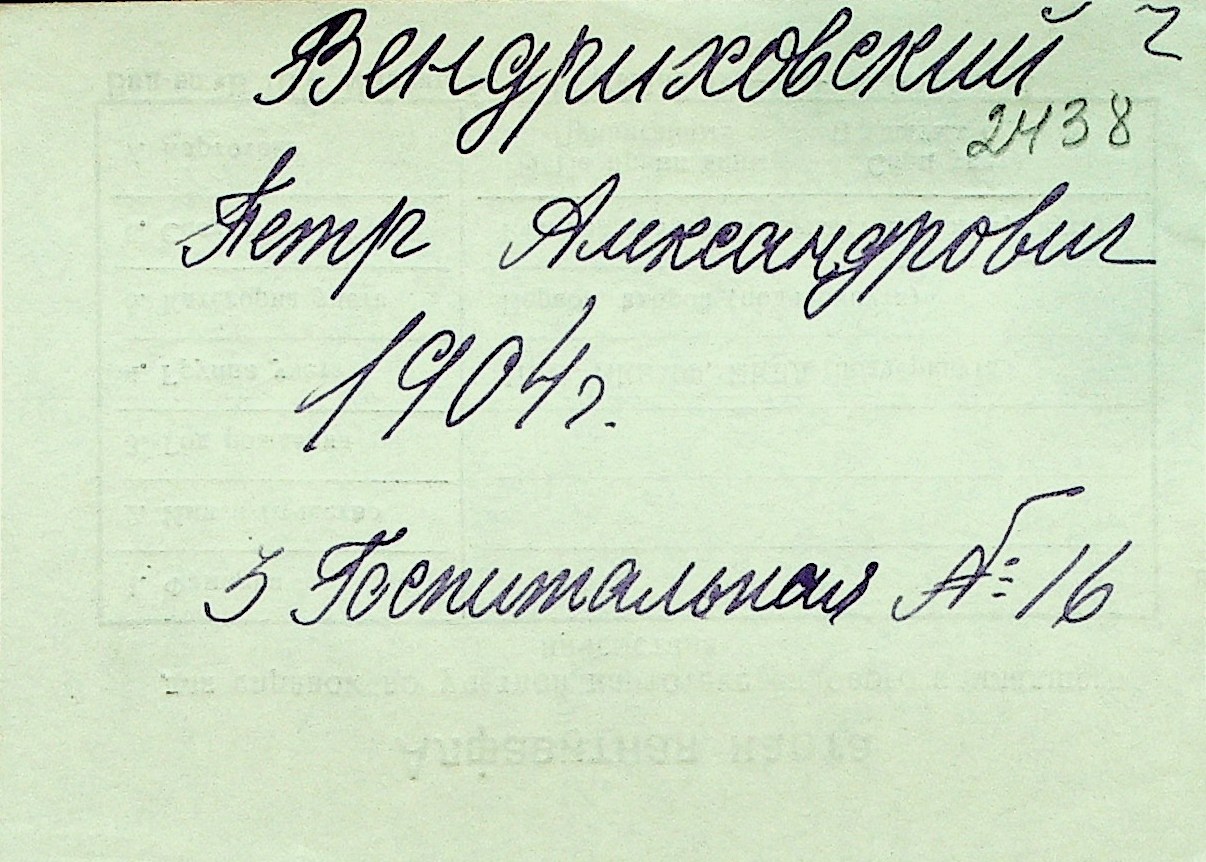 Вендриховский
2438
Петр Александрович
1904 г.
3 Госпитальная № 16